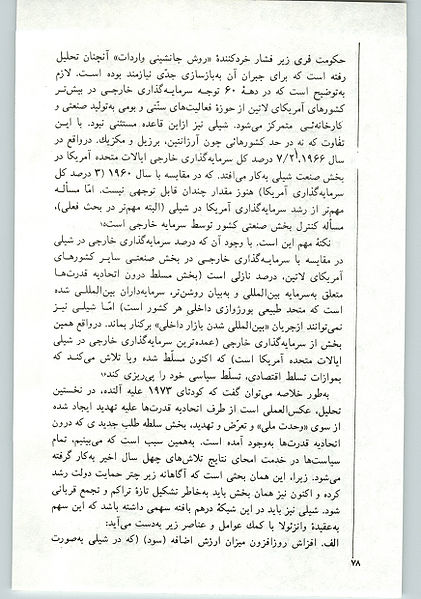 حکومت فری زیر فشار خردکنندهٔ «روش جانشینی واردات» آنچنان تحلیل
رفته است که برای جبران آن به‌بازسازی جدّی نیازمند بوده است. لازم
به‌توضیح است که در دههٔ ۶۰ توجه سرمایه‌گذاری خارجی در بیش‌تر
کشورهای آمریکای لاتین از حوزهٔ فعالیت‌های سنّتی و بومی به‌تولید صنعتی و
کارخانه‌ئی متمرکز می‌شود. شیلی نیز ازاین قاعده مستثنی نبود. با این
تفاوت که نه در حد کشورهائی چون آرژانتین، برزیل و مکزیک. درواقع در
سال ۱۹۶۶، ۷/۲ درصد کل سرمایه‌گذاری خارجی ایالات متحده آمریکا در
بخش صنعت شیلی به‌کار می‌افتد. که در مقایسه با سال ۱۹۶۰ (۳ درصد کل
سرمایه‌گذاری آمریکا) هنوز مقدار چندان قابل توجهی نیست. امّا مسأله
مهم‌تر از رشد سرمایه‌گذاری آمریکا در شیلی (البته مهم‌تر در بحث فعلی)،
مسأله کنترل بخش صنعتی کشور توسط سرمایه خارجی است.
نکتهٔ مهم این است. با وجود آن که درصد سرمایه‌گذاری خارجی در شیلی
در مقایسه با سرمایه‌گذاری خارجی در بخش صنعتی سایر کشورهای
آمریکای لاتین، درصد نازلی است (بخش مسلط درون اتحادیه قدرت‌ها
متعلق به‌سرمایه بین‌المللی و به‌بیان روشن‌تر، سرمایه‌داران بین‌المللی شده
است که متحد طبیعی بورژوازی داخلی هر کشور است) امّا شیلی نیز
نمی‌توانند ازجریان «بین‌المللی شدن بازار داخلی» برکنار بماند. درواقع همین
بخش از سرمایه‌گذاری خارجی (عمده‌ترین سرمایه‌گذاری خارجی در شیلی
ایالات متحده آمریکا است) که اکنون مسلّط شده وبا تلاش می‌کند که
بموازات تسلط اقتصادی، تسلّط سیاسی خود را پی‌ریزی کند
به‌طور خلاصه می‌توان گفت که کودتای ۱۹۷۳ علیه آلنده، در نخستین
تحلیل، عکس‌العملی است از طرف اتحادیه قدرت‌ها علیه تهدید ایجاد شده
از سوی «وحدت ملی» و تعرّض و تهدید، بخش سلطه طلب جدید ی که درون
اتحادیه قدرت‌ها به‌وجود آمده است. به‌همین سبب است که می‌بینیم، تمام
سیاست‌ها در خدمت امحای نتایج تلاش‌های چهل سال اخیر به‌کار گرفته
می‌شود. زیرا، این همان بحثی است که آگاهانه زیر چتر حمایت دولت رشد
کرده و اکنون نیز همان بخش باید به‌خاطر تشکیل تازهٔ تراکم و تجمع قربانی
شود. شیلی نیز باید در این شبکهٔ درهم بافته سهمی داشته باشد که این سهم
به‌عقیدهٔ وانزئولا با کمك عوامل و عناصر زیر به‌دست می‌آید:
الف. افزایش روزافزون میزان ارزش اضافه (سود) (که در شیلی به‌صورت
۷۸